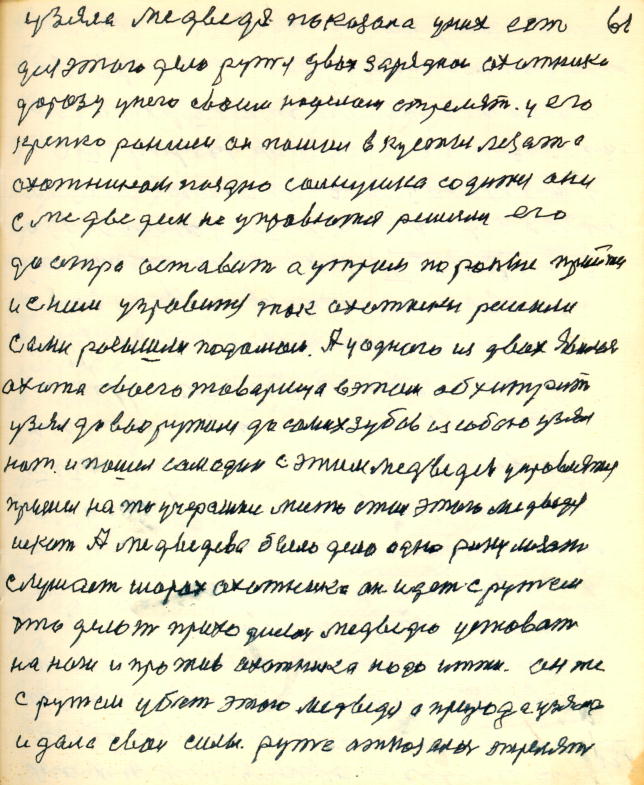 узяла медведя показала уних ест 61
для этого дело ружя двох зарядная охотника
дорогу унего своим наделам стрелят. и его
крепко ранили он пошел в кусты лежат а
охотникам поздно солнушка содится они
с медведем не управются решили его
до отра оставит а утрим пораньше прийти
и с ним управится так охотники решили
сами розышли подомам. А у одного из двох явилася
охота своего товарища вэтом обхитрит
узял довооружил до самих зубов из собою узял
нож. и пошел самодин с этим медведем управлятся
пришел на то учерашние место стал этого медведя
искат А медведева было дело одно рану лизат
слушает шорох охотника он идет с ружем
што делат приходился медведю устават
на ноги и против охотника надо итти. он же
с ружем убет этого медведя а природа узяла
и дала свои силы. ружо отказалос стрелят